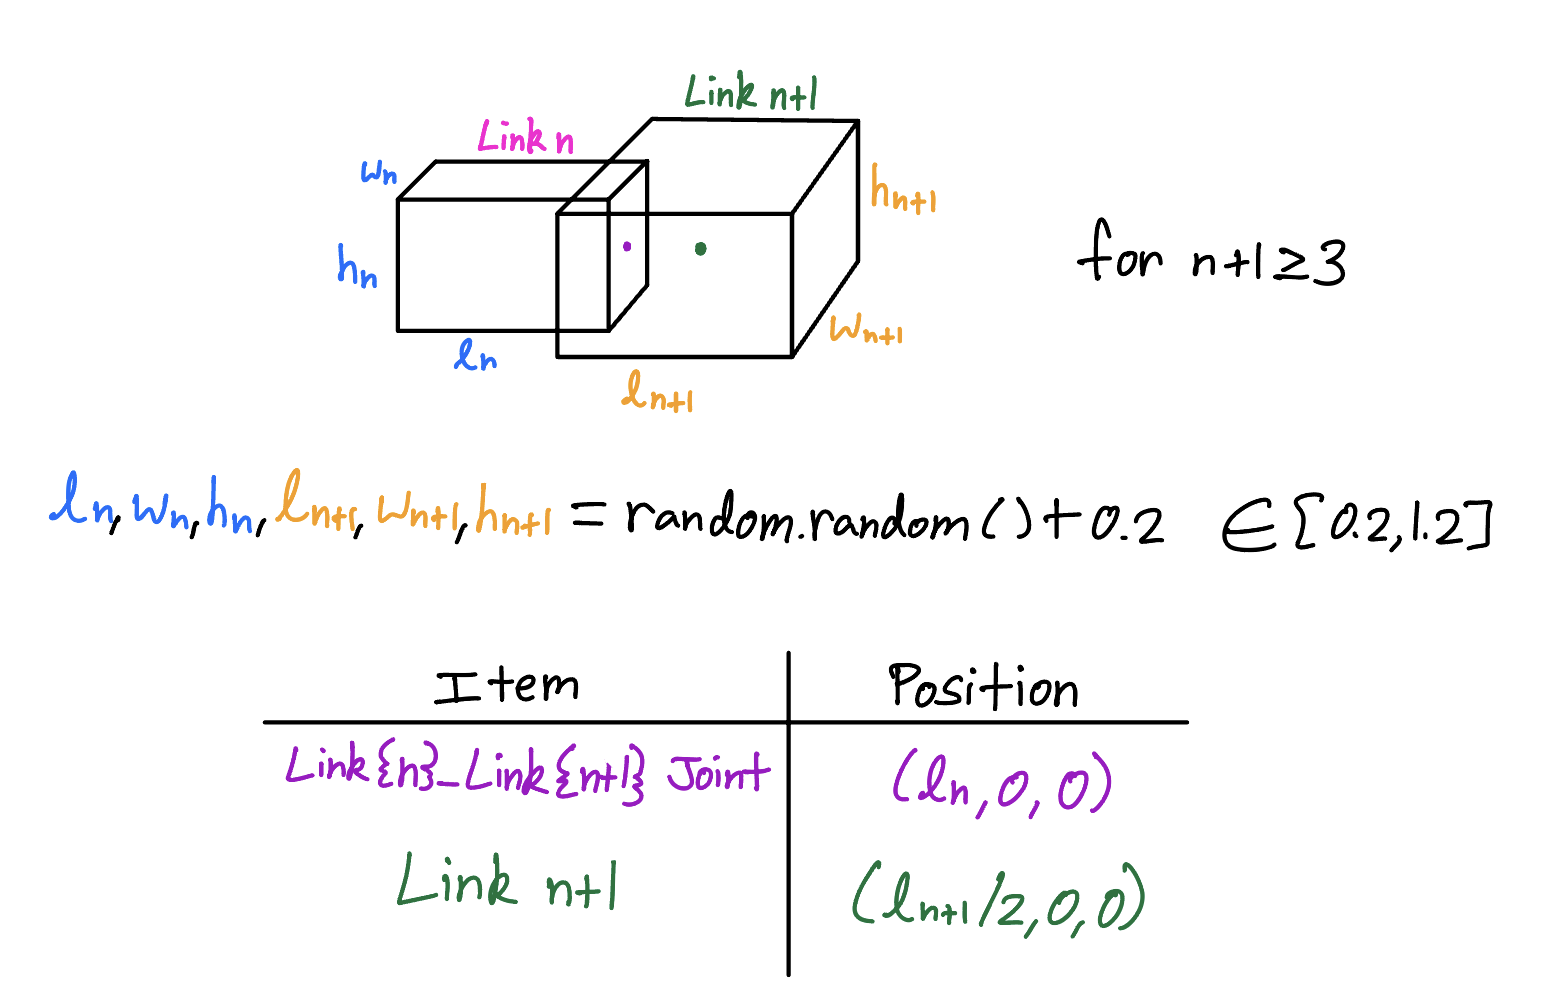 Link n+1
Link n
wₙ
hₙ₊₁
for n+1≥3
hₙ
wₙ₊₁
lₙ
lₙ₊₁
lₙ, wₙ, hₙ, lₙ₊₁, wₙ₊₁, hₙ₊₁ = random.random()+0.2 ∈[0.2,1.2]
Item Position
Link{n}_Link{n+1} Joint (lₙ, 0, 0)
Link n+1 (lₙ₊₁/2, 0, 0)